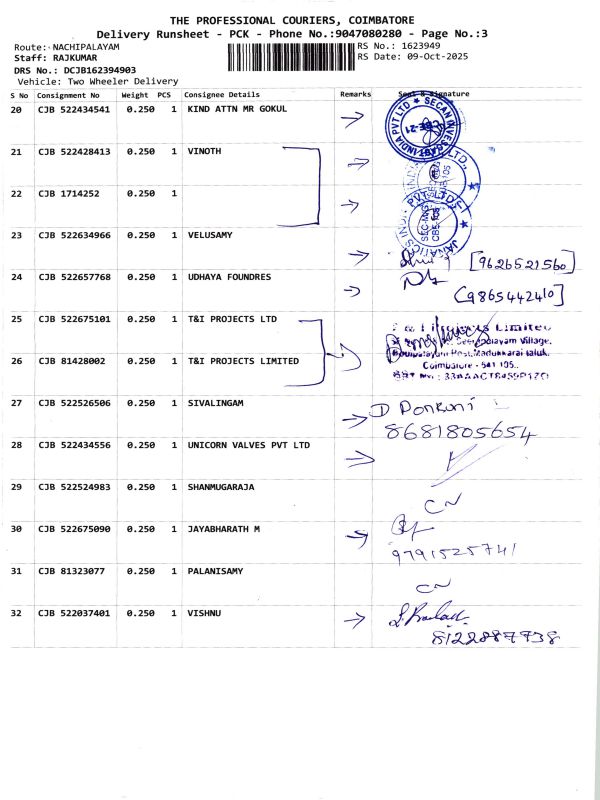 THE PROFESSIONAL COURIERS, COIMBATORE
Delivery Runsheet - PCK - Phone No.:9047080280 - Page No.:3
Route: NACHIPALAYAM
RS No.: 1623949
Staff: RAJKUMAR
RS Date: 09-Oct-2025
DRS No.: DCJB162394903
Vehicle: Two Wheeler Delivery
S No Consignment No Weight PCS Consignee Details Remarks Seal & Signature
20 CJB 522434541 0.250 1 KIND ATTN MR GOKUL
21 CJB 522428413 0.250 1 VINOTH
22 CJB 1714252 0.250 1
23 CJB 522634966 0.250 1 VELUSAMY
[9626521560]
24 CJB 522657768 0.250 1 UDHAYA FOUNDRES
[9865442410]
25 CJB 522675101 0.250 1 T&I PROJECTS LTD
26 CJB 81428002 0.250 1 T&I PROJECTS LIMITED
Coimbatore - 641 105.
27 CJB 522526506 0.250 1 SIVALINGAM
D Ponkuni
8681805654
28 CJB 522434556 0.250 1 UNICORN VALVES PVT LTD
29 CJB 522524983 0.250 1 SHANMUGARAJA
CN
30 CJB 522675090 0.250 1 JAYABHARATH M
9791525741
31 CJB 81323077 0.250 1 PALANISAMY
CN
32 CJB 522037401 0.250 1 VISHNU
8122887738